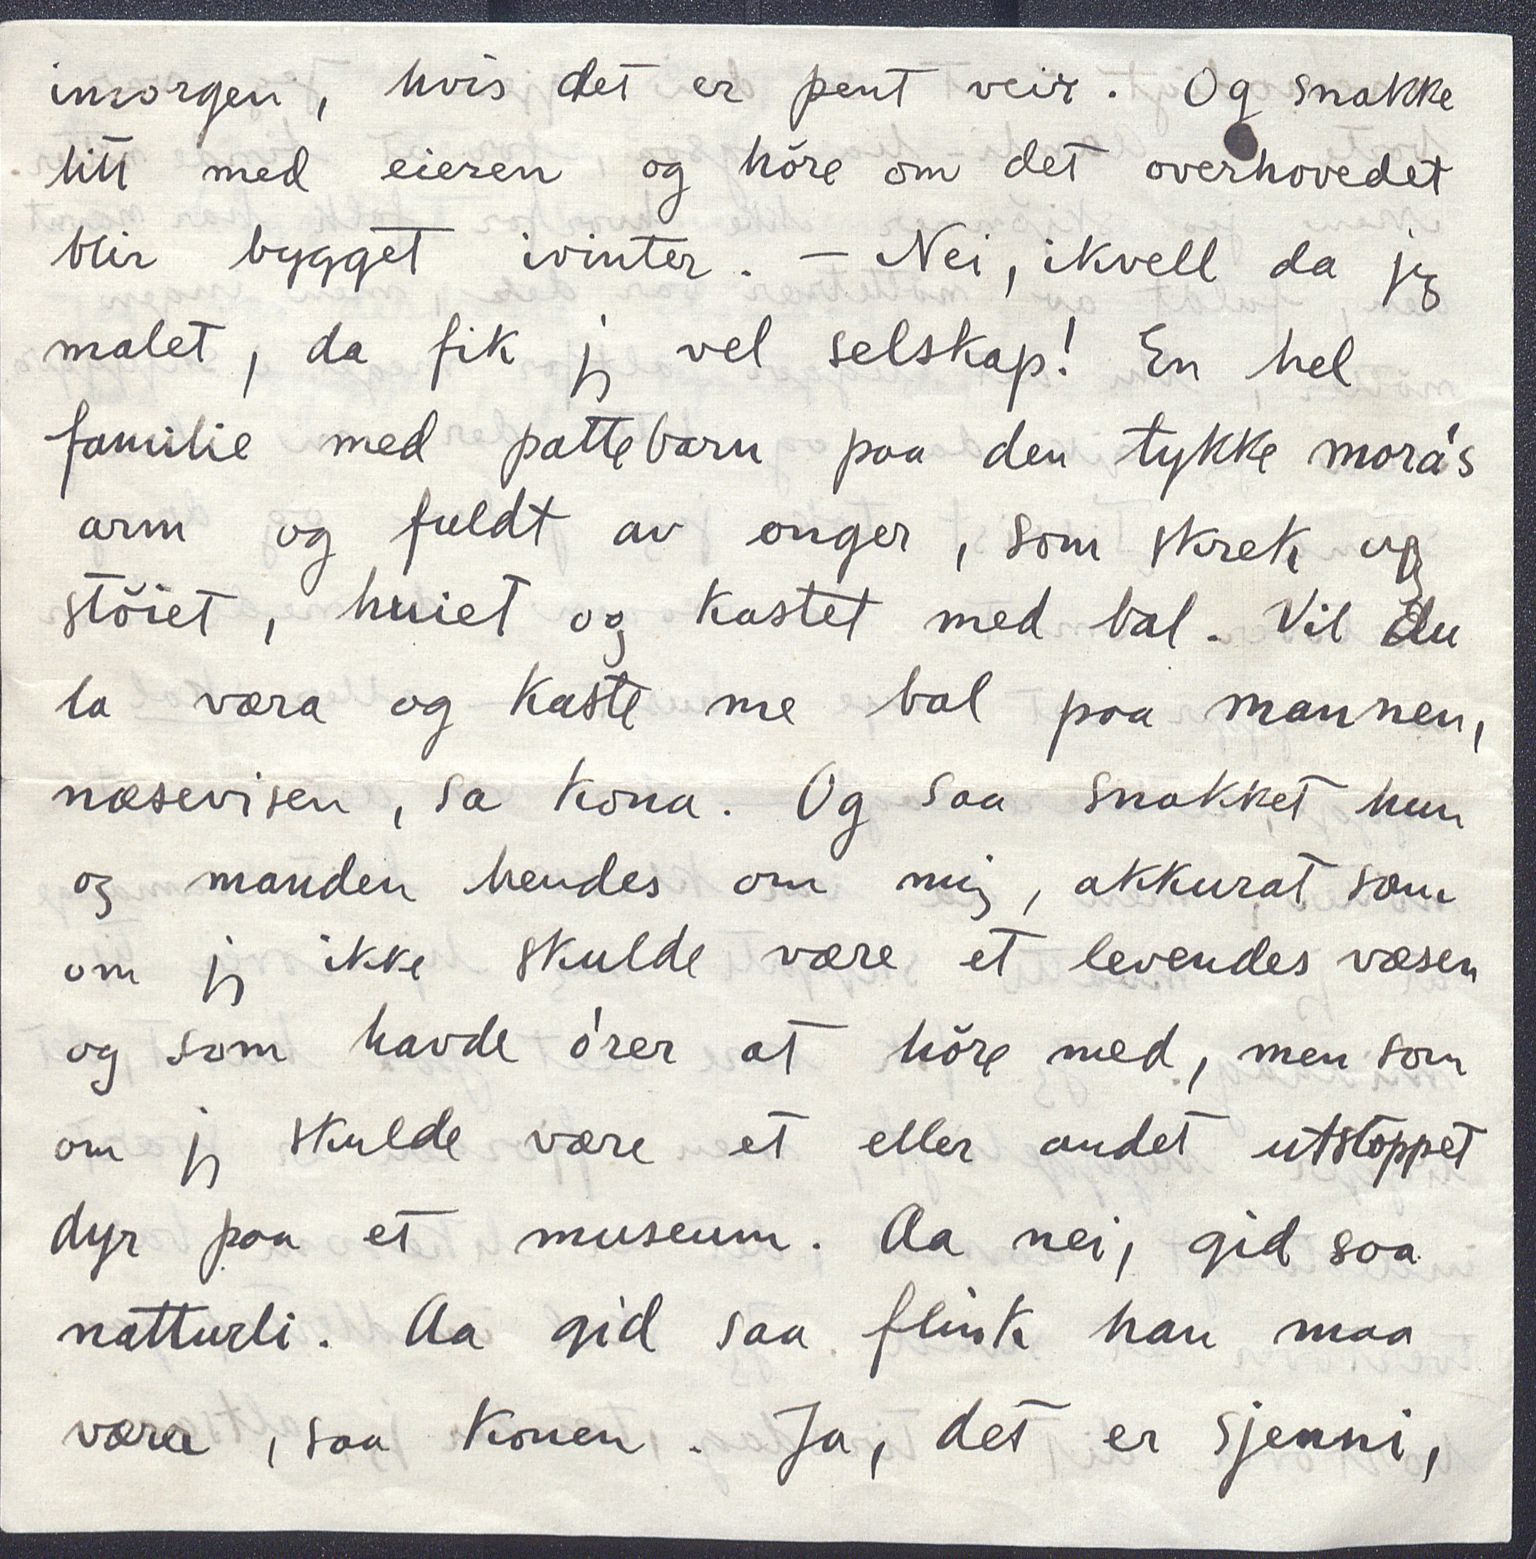 imorgen, hvis det er pent veir. Og snakke
litt med eieren og høre om det overhovedet
blir bygget ivinter. – Nei, ikvell da jeg
malet, da fik jeg vel selskap! En hel
familie med pattebarn paa den tykke mora's
arm og fuldt av onger, som skrek og
støiet, huiet og kastet med bal. Vil du
la væra og kaste me bal paa mannen,
næsevisen, sa kona. Og saa snakket hun
og manden hendes om mig, akkurat som
om jeg ikke skulde være et levendes væsen
og som havde ører at høre med, men som
om jeg skulde være et eller andet utstoppet
dyr paa et museum. Aa nei, gid saa
natturli. Aa gid saa flink han maa
være, saa konen. Ja, det er sjenni,